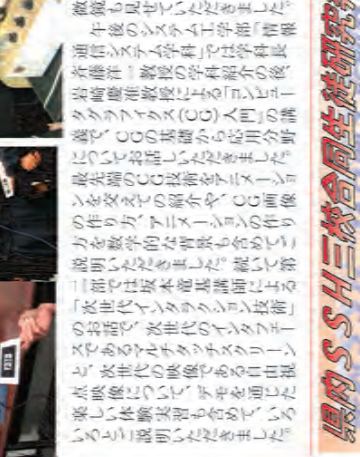 微鏡も見せていただきました。
午後のシステム工学部「情報
通信システム学科」では学科長
斉藤洋一教授の学科紹介の後、
岩崎慶准教授による「コンピュー
タグラフィクス(CG)入門」の講
義で、CGの基礎から応用分野
についてお話しいただきました。
最先端のCG技術をアニメーショ
ンを交えての紹介や、CG画像
の作り方、アニメーションの作り
方を数学的な背景も含めてご
説明いただきました。続いて第
二部では坂本竜基講師による
「次世代インタラクション技術」
のお話で、次世代のインタフェー
スであるマルチタッチスクリーン
と、次世代の映像である自由視
点映像について、デモを通じた
楽しい体験実習も含めて、いろ
いろとご説明いただきました。
県内SSH三校合同生徒研究